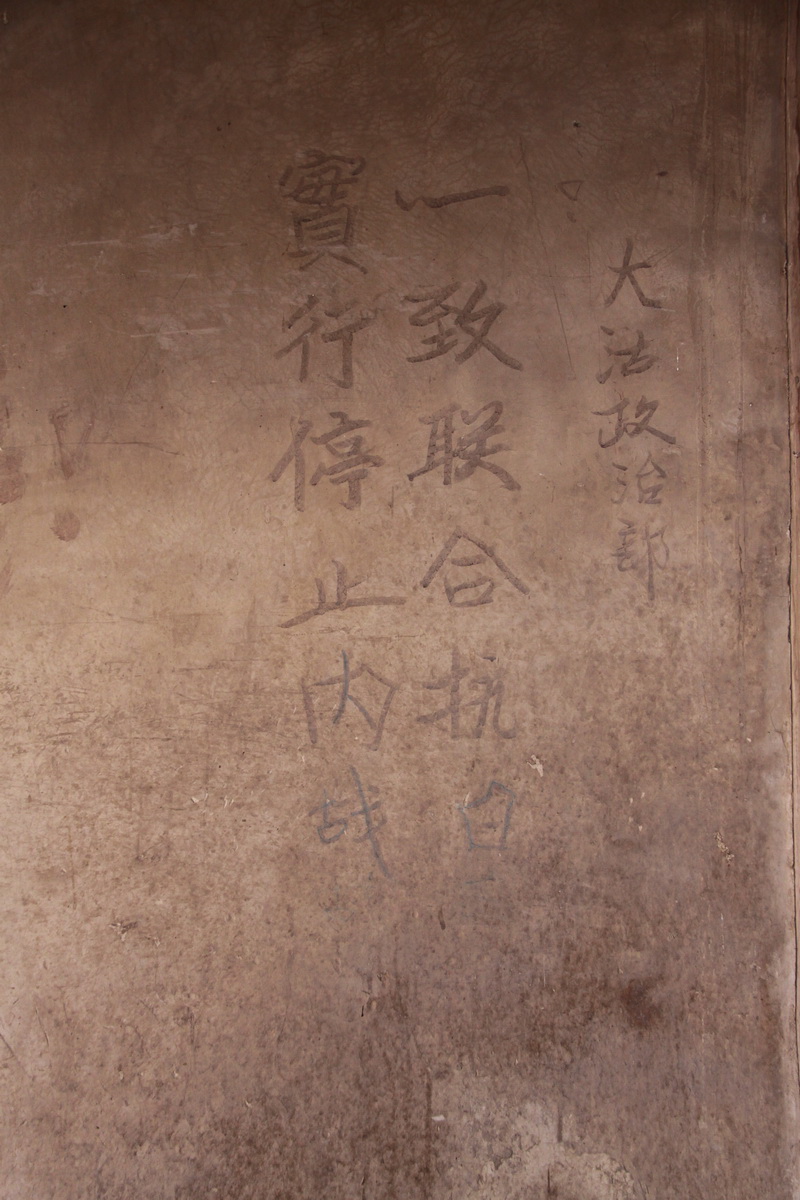 大法政治部
一致联合抗日
實行停止内战